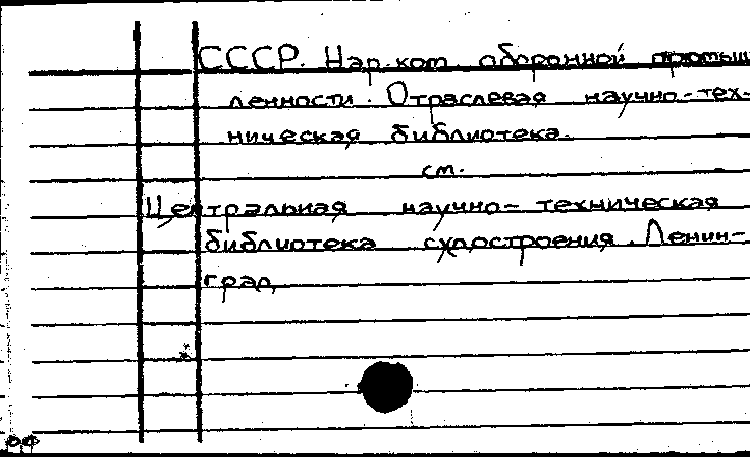 СССР. Нар.ком. оборонной промыш
ленности. Отраслевая научно-тех-
ническая библиотека.
см.
Центральная научно-техническая
библиотека судостроения. Ленин-
град